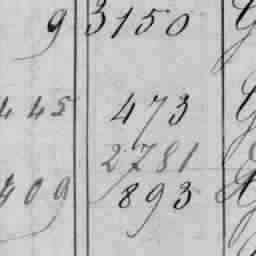 9 3150
445 473
2781
409 893